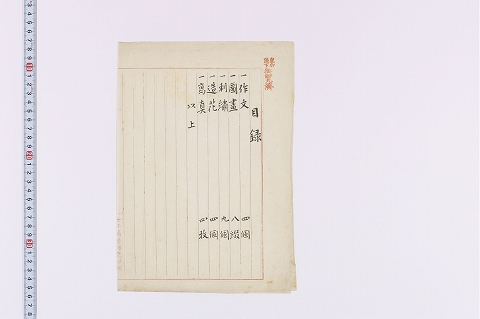 目録
一作文 四個
一圖畫 八綴
一刺繍 九個
一造花 四個
一寫真 四枚
以上